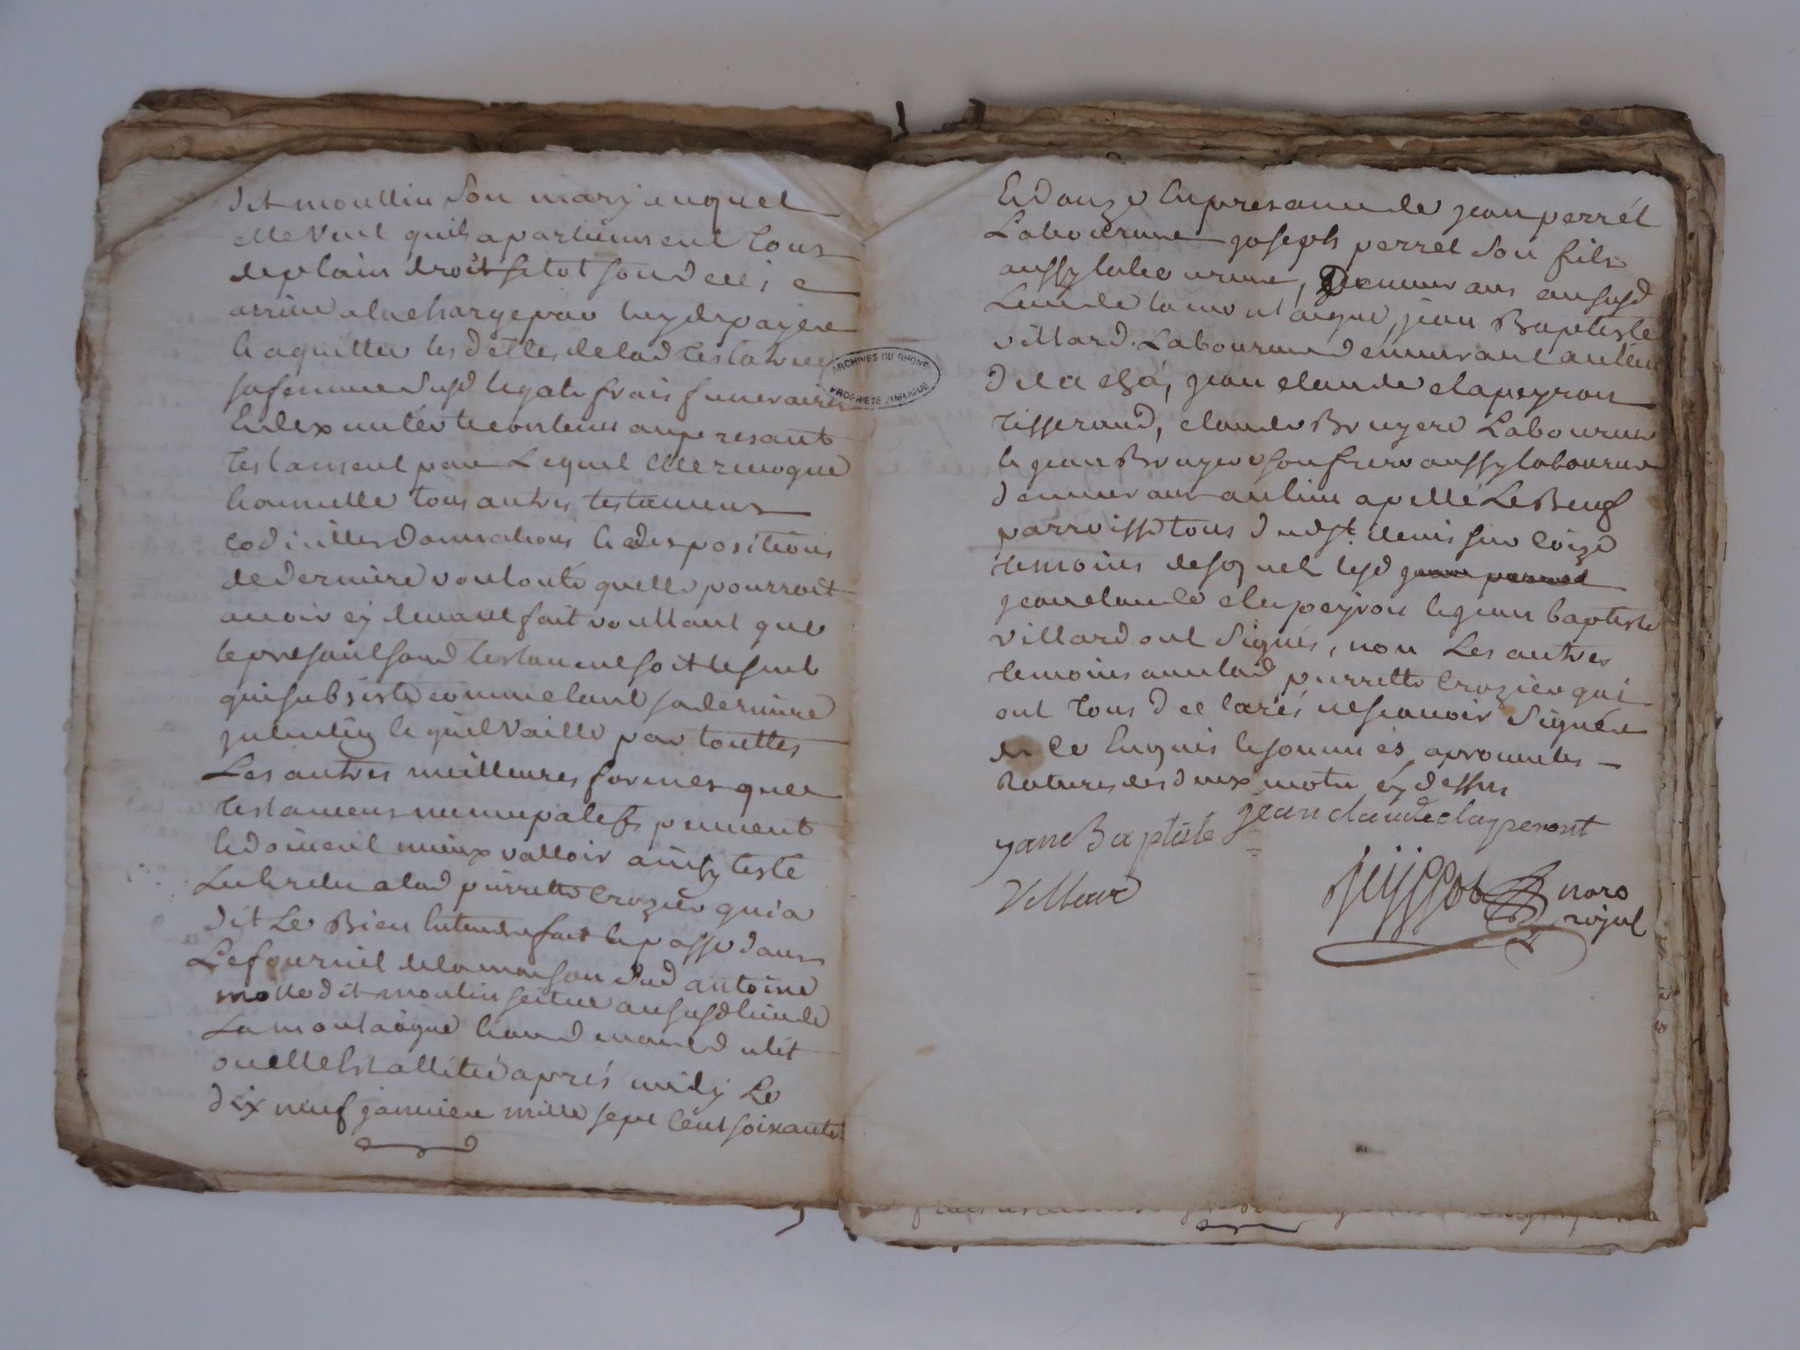 dit moullin son mary auquel
elle veut quils apartiennent tous
de plain droit sitot son deces
arrivé a la charge par luy de payer
& aquitter les dettes de lad testatrice
sa femme susd legats frais funeraires
Et dexecuter le contenu au presant
testament par Lequel elle revoque
& annulle tous autres testamens
codicilles donnations & dispositions
de derniere voulonté quelle pourroit
avoir cy devant fait voullant que
le presant soit le seul
qui subsiste comme etant sa derniere
& quil vaille par touttes
Les autres meilleures formes que
testamens nuncupatifs peuvent
& doivent mieux valloir ainsy testé
Leu & relu a lad pierrette Crozier qui a
dit Le Bien Entendre fait & passé dans
Le fournil de la maison dud antoine
molle dit moulin scitué au susd lieu de
La montaigne & au devant du lit
ou elle Est allitée aprés midy Le
dix neuf janvier mille sept Cent soixante
Et donze En presance de jean perrét
Laboureur joseph perret son fils
aussy laboureur, Demeurans au susd
Lieu de la montaigne, jean Baptiste
villard Laboureur demeurant au lieu
de la, jean claude clapeyron
tisserand, claude Bruyere Laboureur
& jean Bruyere son frere aussy laboureur
demeurans au lieu apellé Le Beuf
parroisse tous dud st. denis sur Coize
temoins desquels lesd jean perret
jean claude clapeyron & jean baptiste
villard ont signés, non Les autres
temoins avec lad pierrette Crozier qui
ont tous declarés ne scavoir signér
de ce Enquis & sommés, aprouvé les
Ratures des deux mots cy dessus
jean claude claperont
jane Baptiste
Villard
noro
royal
ARCHIVES DU RHONE
PROPRIÉTÉ PUBLIQUE